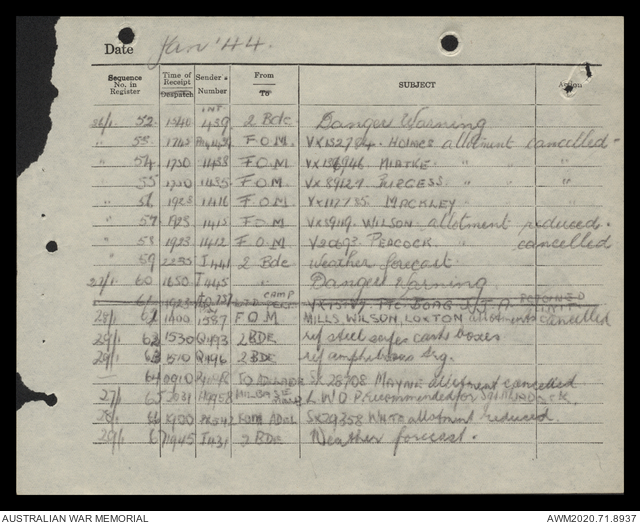 Date Jan '44.
Sequence No. in Register Time of Receipt Despatch Sender's Number From To SUBJECT Action
26/1. 52. 1540 INT 439 2 Bde Danger Warning
" 53. 1745 F.O.M. HOLMES allotment cancelled.
" 54. 1750 1438 F.O.M. " "
" 55 1750 1435 F.O.M. VX 89127 BURGESS. " "
" 56 1923 1416 F.O.M. VX117735 MACKLEY "
" 57. 1923 1415 F.O.M. WILSON allotment reduced.
" 58. 1923 1412 F.O.M. PEACOCK. " cancelled
" 59 2235 I 441 2 Bde Weather forecast.
27/1. 60 1650 I 445 " Danger Warning.
61 1923 CAMP Pte. BOAG
28/1 62 1400 1587 F.O.M MILLS, WILSON, LOXTON allotments cancelled
29/1 62 1530 Q493 2 BDE ref steel safes cash boxes
29/1 63 1510 Q496 2 BDE ref amphibious trg.
64 0910 SX 28708 MAYNE allotment cancelled
27/1 65 2031 L W O P recommended for
28/1 66 1900 SX29358 WHITE allotment reduced.
29/1. 67 1945 I431 2 BDE Weather forecast.
AUSTRALIAN WAR MEMORIAL AWM2020.71.8937